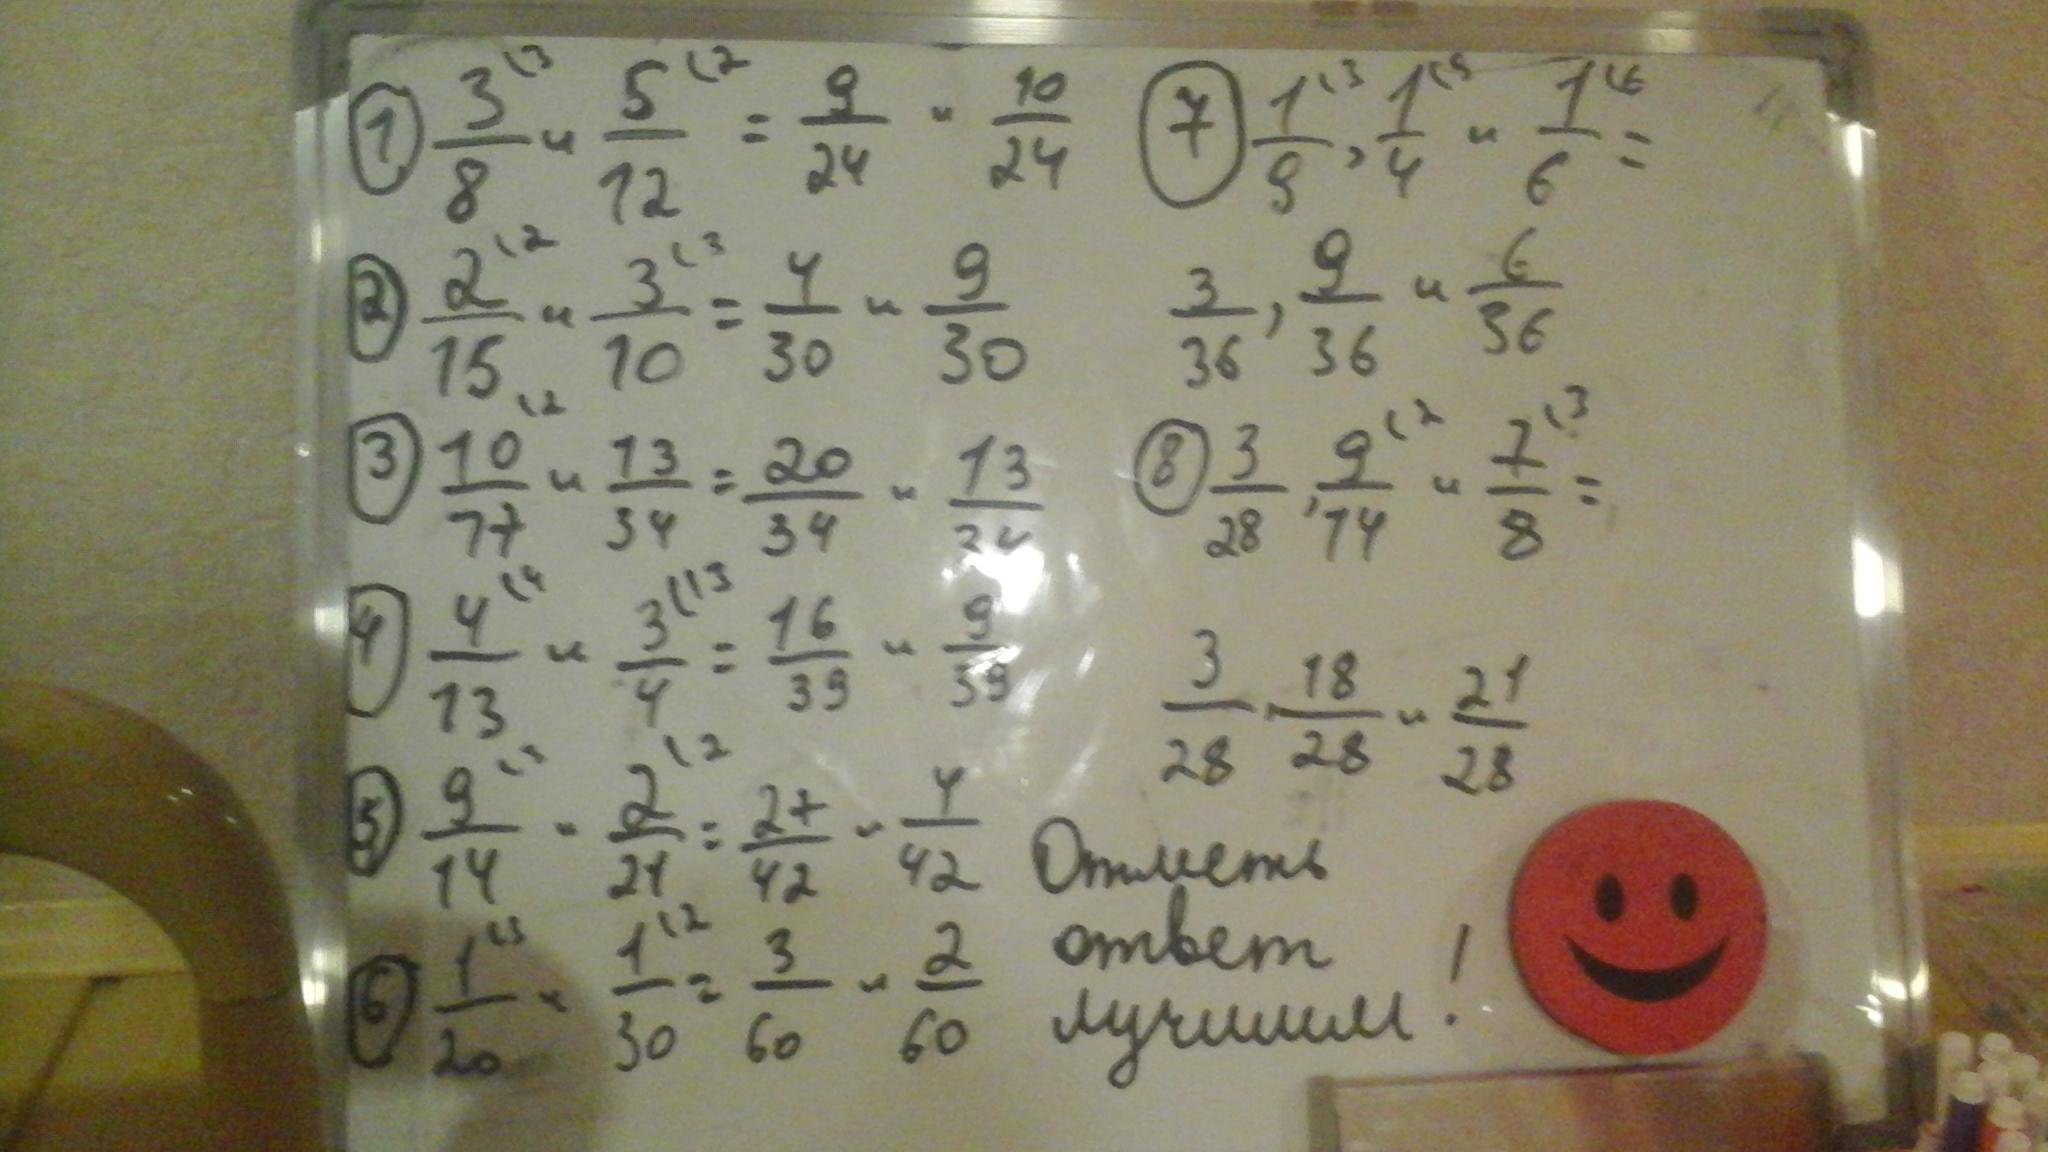 ① 3⁽³/8 и 5⁽²/12 = 9/24 и 10/24
② 2⁽²/15 и 3⁽³/10 = 4/30 и 9/30
③ 10⁽²/17 и 13/34 = 20/34 и 13/34
④ 4⁽⁴/13 и 3⁽¹³/4 = 16/39 и 9/39
⑤ 9⁽³/14 и 2⁽²/21 = 27/42 и 4/42
⑥ 1⁽³/20 и 1⁽²/30 = 3/60 и 2/60
⑦ 1⁽³/9, 1⁽⁹/4 и 1⁽⁶/6 =
3/36, 9/36 и 6/36
⑧ 3/28, 9⁽²/14 и 7⁽³/8 =
3/28, 18/28 и 21/28
Отметь
ответ
лучшим!